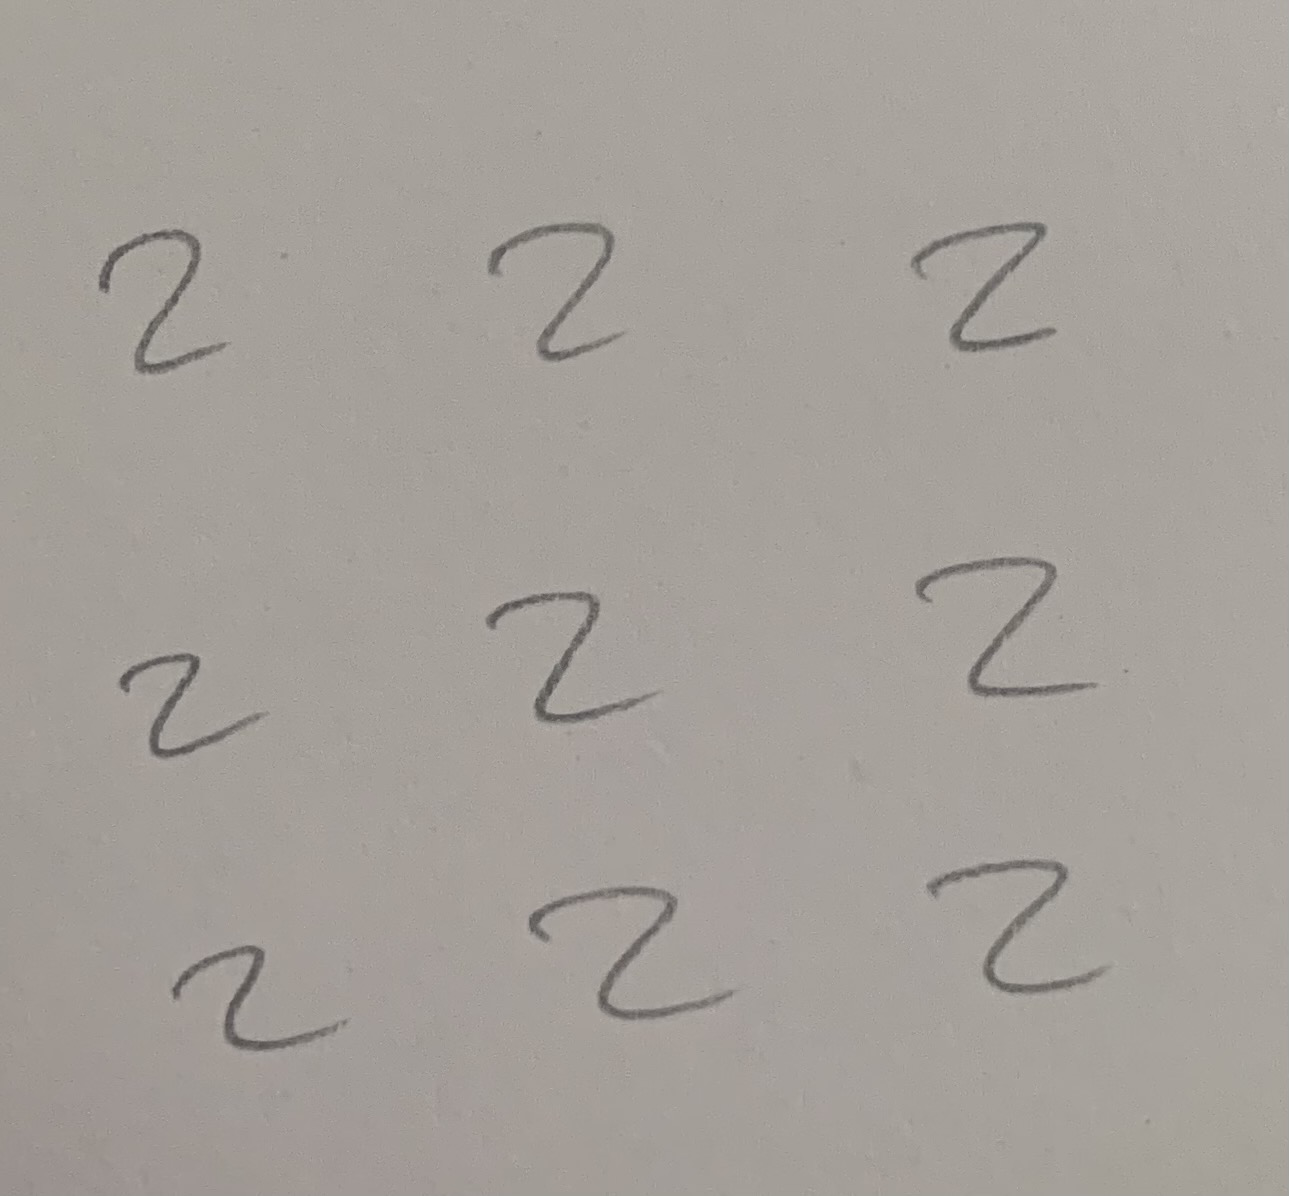 2 2 2
2 2 2
2 2 2